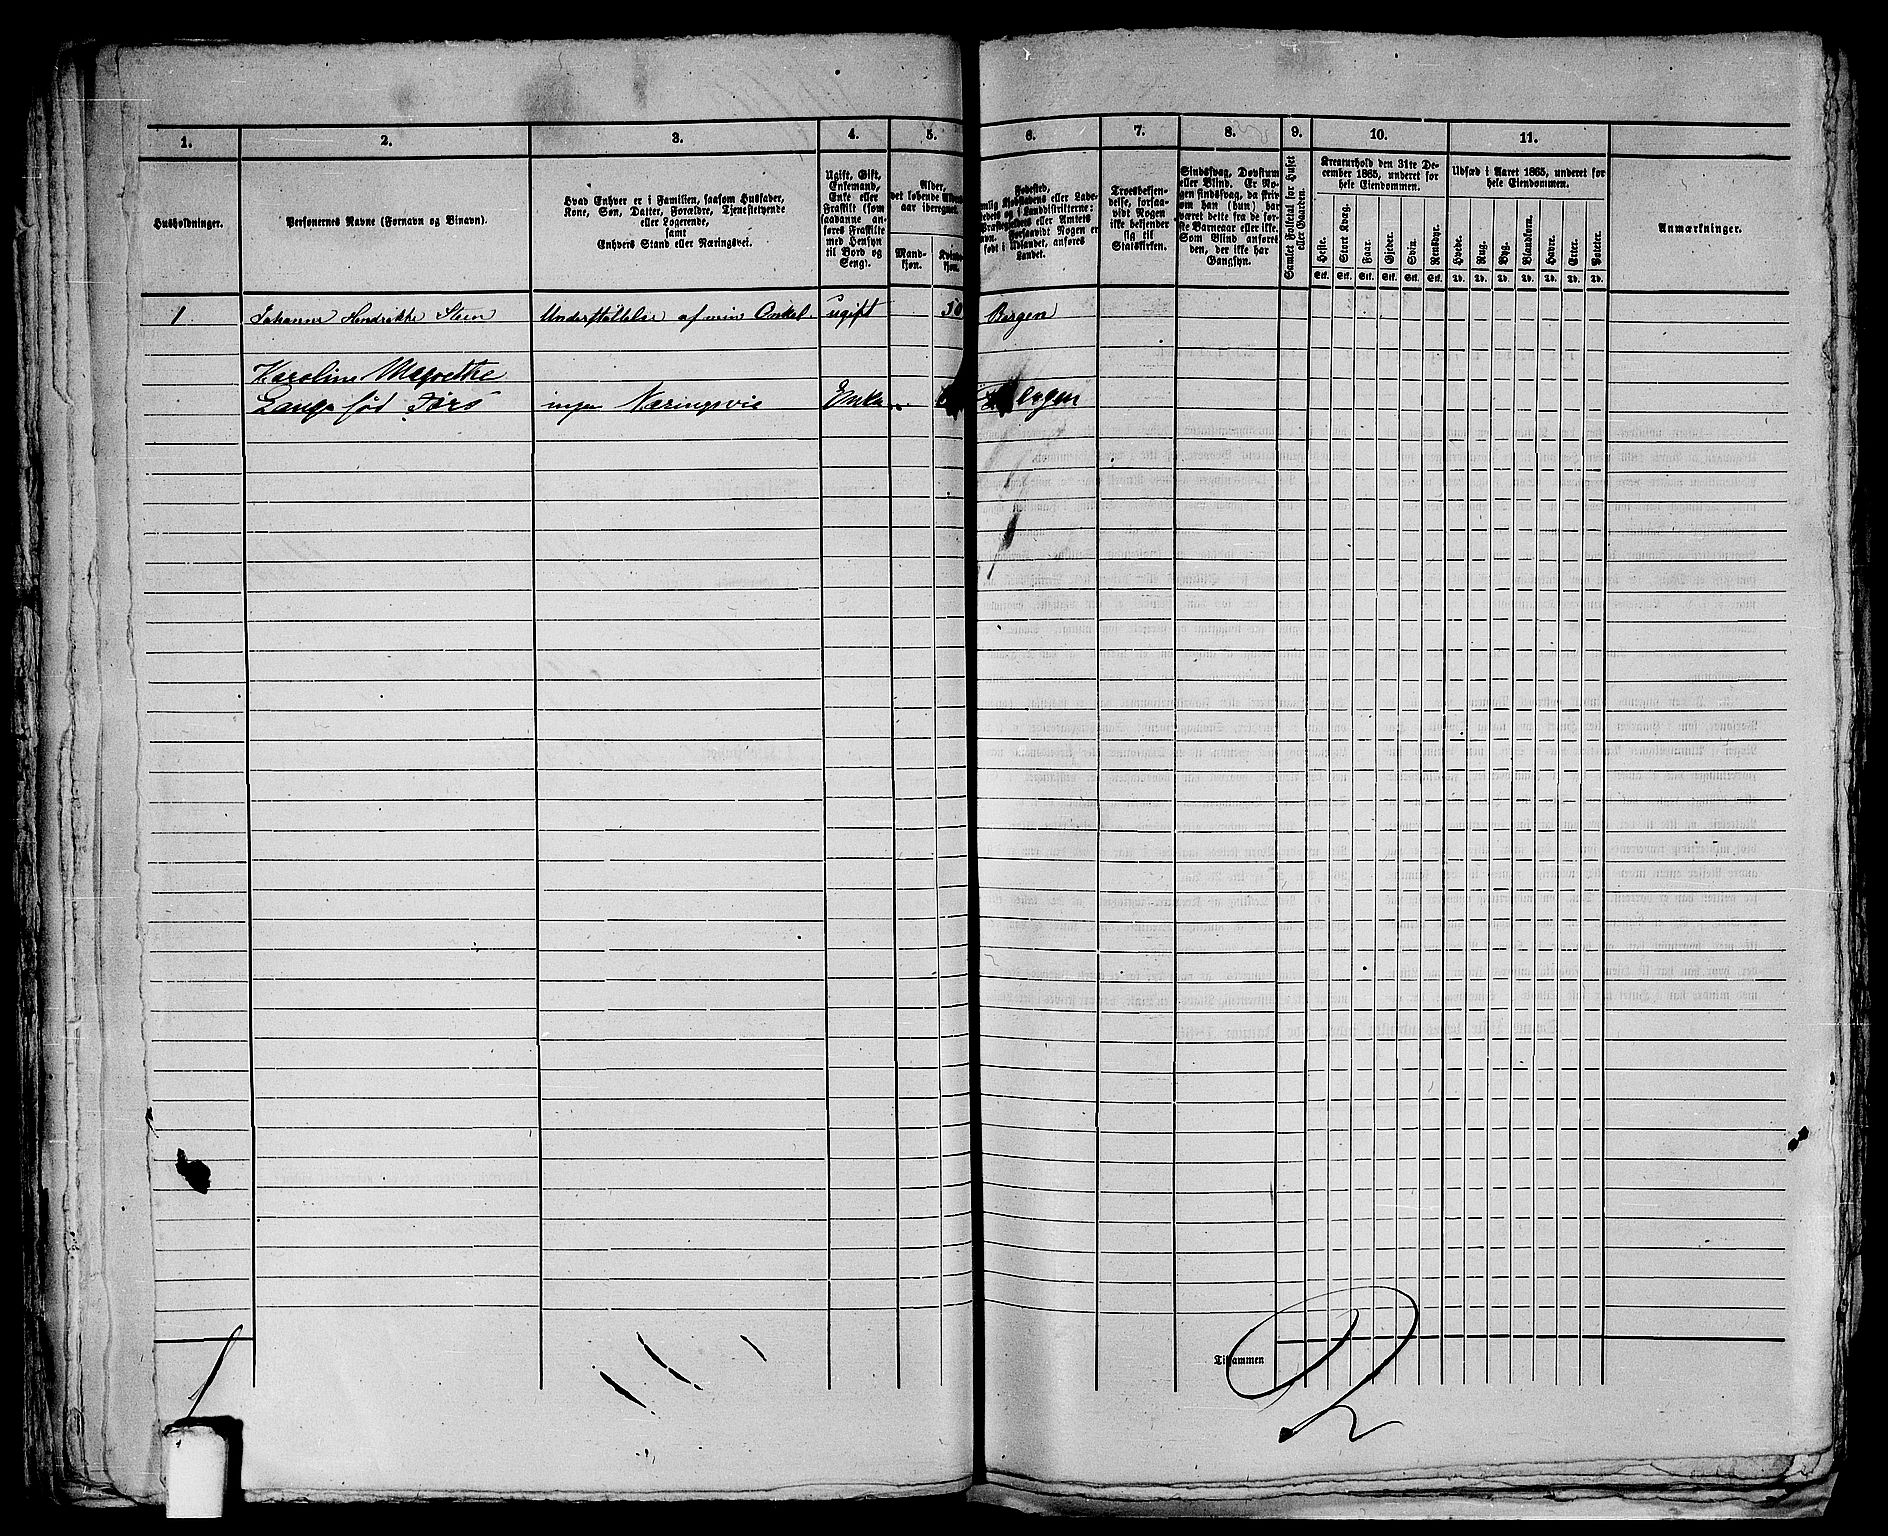 1. 2. 3. 4. 5. 6. 7. 8. 9. 10. 11.
Husholdninger.
Personernes Navne (Fornavn og Binavn).
Hvad Enhver er i Familien, saasom Husfader,
Kone, Søn, Datter, Forældre, Tjenestetyende
eller Logerende,
samt
Enhvers Stand eller Næringsvei.
Ugift, Gift,
Enkemand,
Enke eller
Fraskilt (som
saadanne an-
føres Fraskilte
med Hensyn
til Bord og
Seng).
Alder,
det løbende
aar iberegnet.
Mand-
kjøn.
Kvinde-
kjøn.
Fødested,
eller Lade-
stedets og i Landdistrikterne:
eller Amtets
Navn. Forsaavidt Nogen er
født i Udlandet, anføres
Landet.
Troesbekjen-
delse, forsaa-
vidt Nogen
ikke bekjender
sig til
Statskirken.
Sindssvag, Døvstum
eller Blind. Er No-
gen sindssvag, da skriv
ven han (hun) har
været dette fra de før-
ste Barneaar eller ikke.
Som Blind anføres
den, der ikke har
Gangsyn.
Samlet Folketal for Huset
eller Gaarden.
Kreaturhold den 31te De-
cember 1865, underet for
hele Eiendommen.
Heste. Stort Kvæg. Faar. Gjeder. Svin. Rensdyr.
Stk. Stk. Stk. Stk. Stk. Stk.
Udsæd i Aaret 1865, underet for
hele Eiendommen.
Hvede. Rug. Byg. Blandkorn. Havre. Erter. Poteter.
Td. Td. Td. Td. Td. Td. Td.
Anmærkninger.
1 Johanne Hendrikke Steen Understøttelse af min Onkel ugift 50 Bergen
Karoline
Lange fød ingen Næringsvei Enke
Tilsammen
2